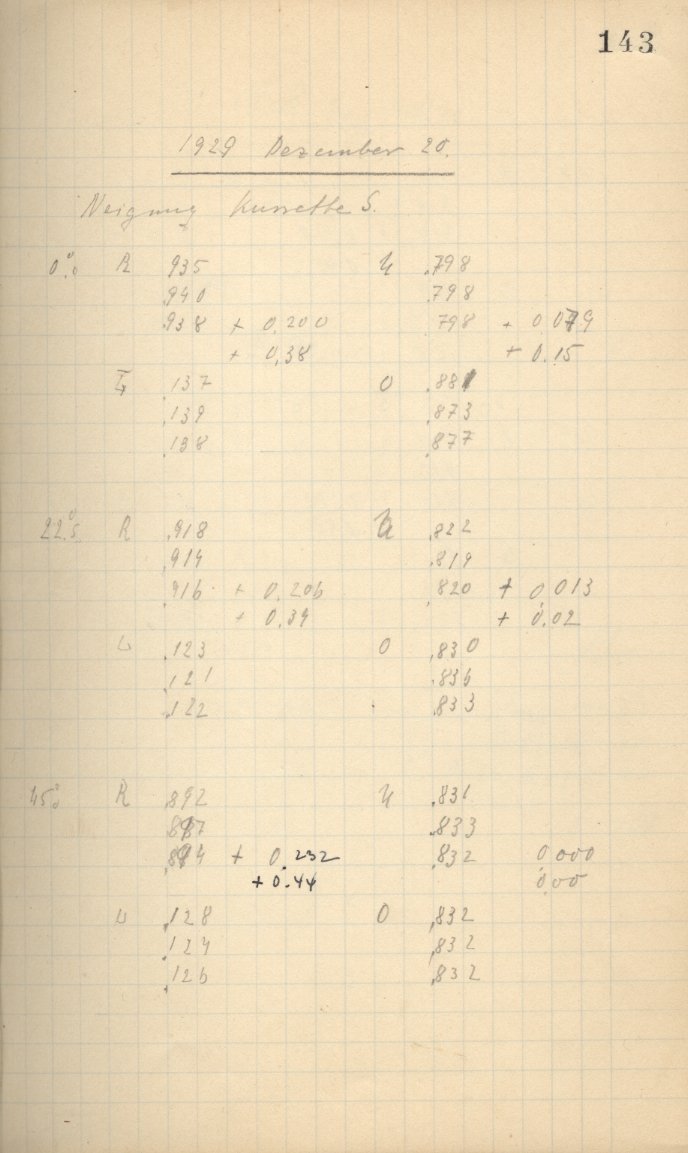 143
1929 Dezember 20.
Neigung Kassette S.
0°.0 R .935 U .798
.940 .798
.938 + 0,200 798 + 0.079
+ 0,38 + 0.15
L .137 O .881
.139 .873
.138 .877
22°.5 R .918 U .822
.914 .819
.916 + 0.206 .820 + 0.013
+ 0.39 + 0.02
L .123 O .830
.121 .836
.122 .833
45°.0 R .892 U .831
.897 .833
.894 + 0.232 .832 0.000
+ 0.44 0.00
L .128 O .832
.124 .832
.126 .832